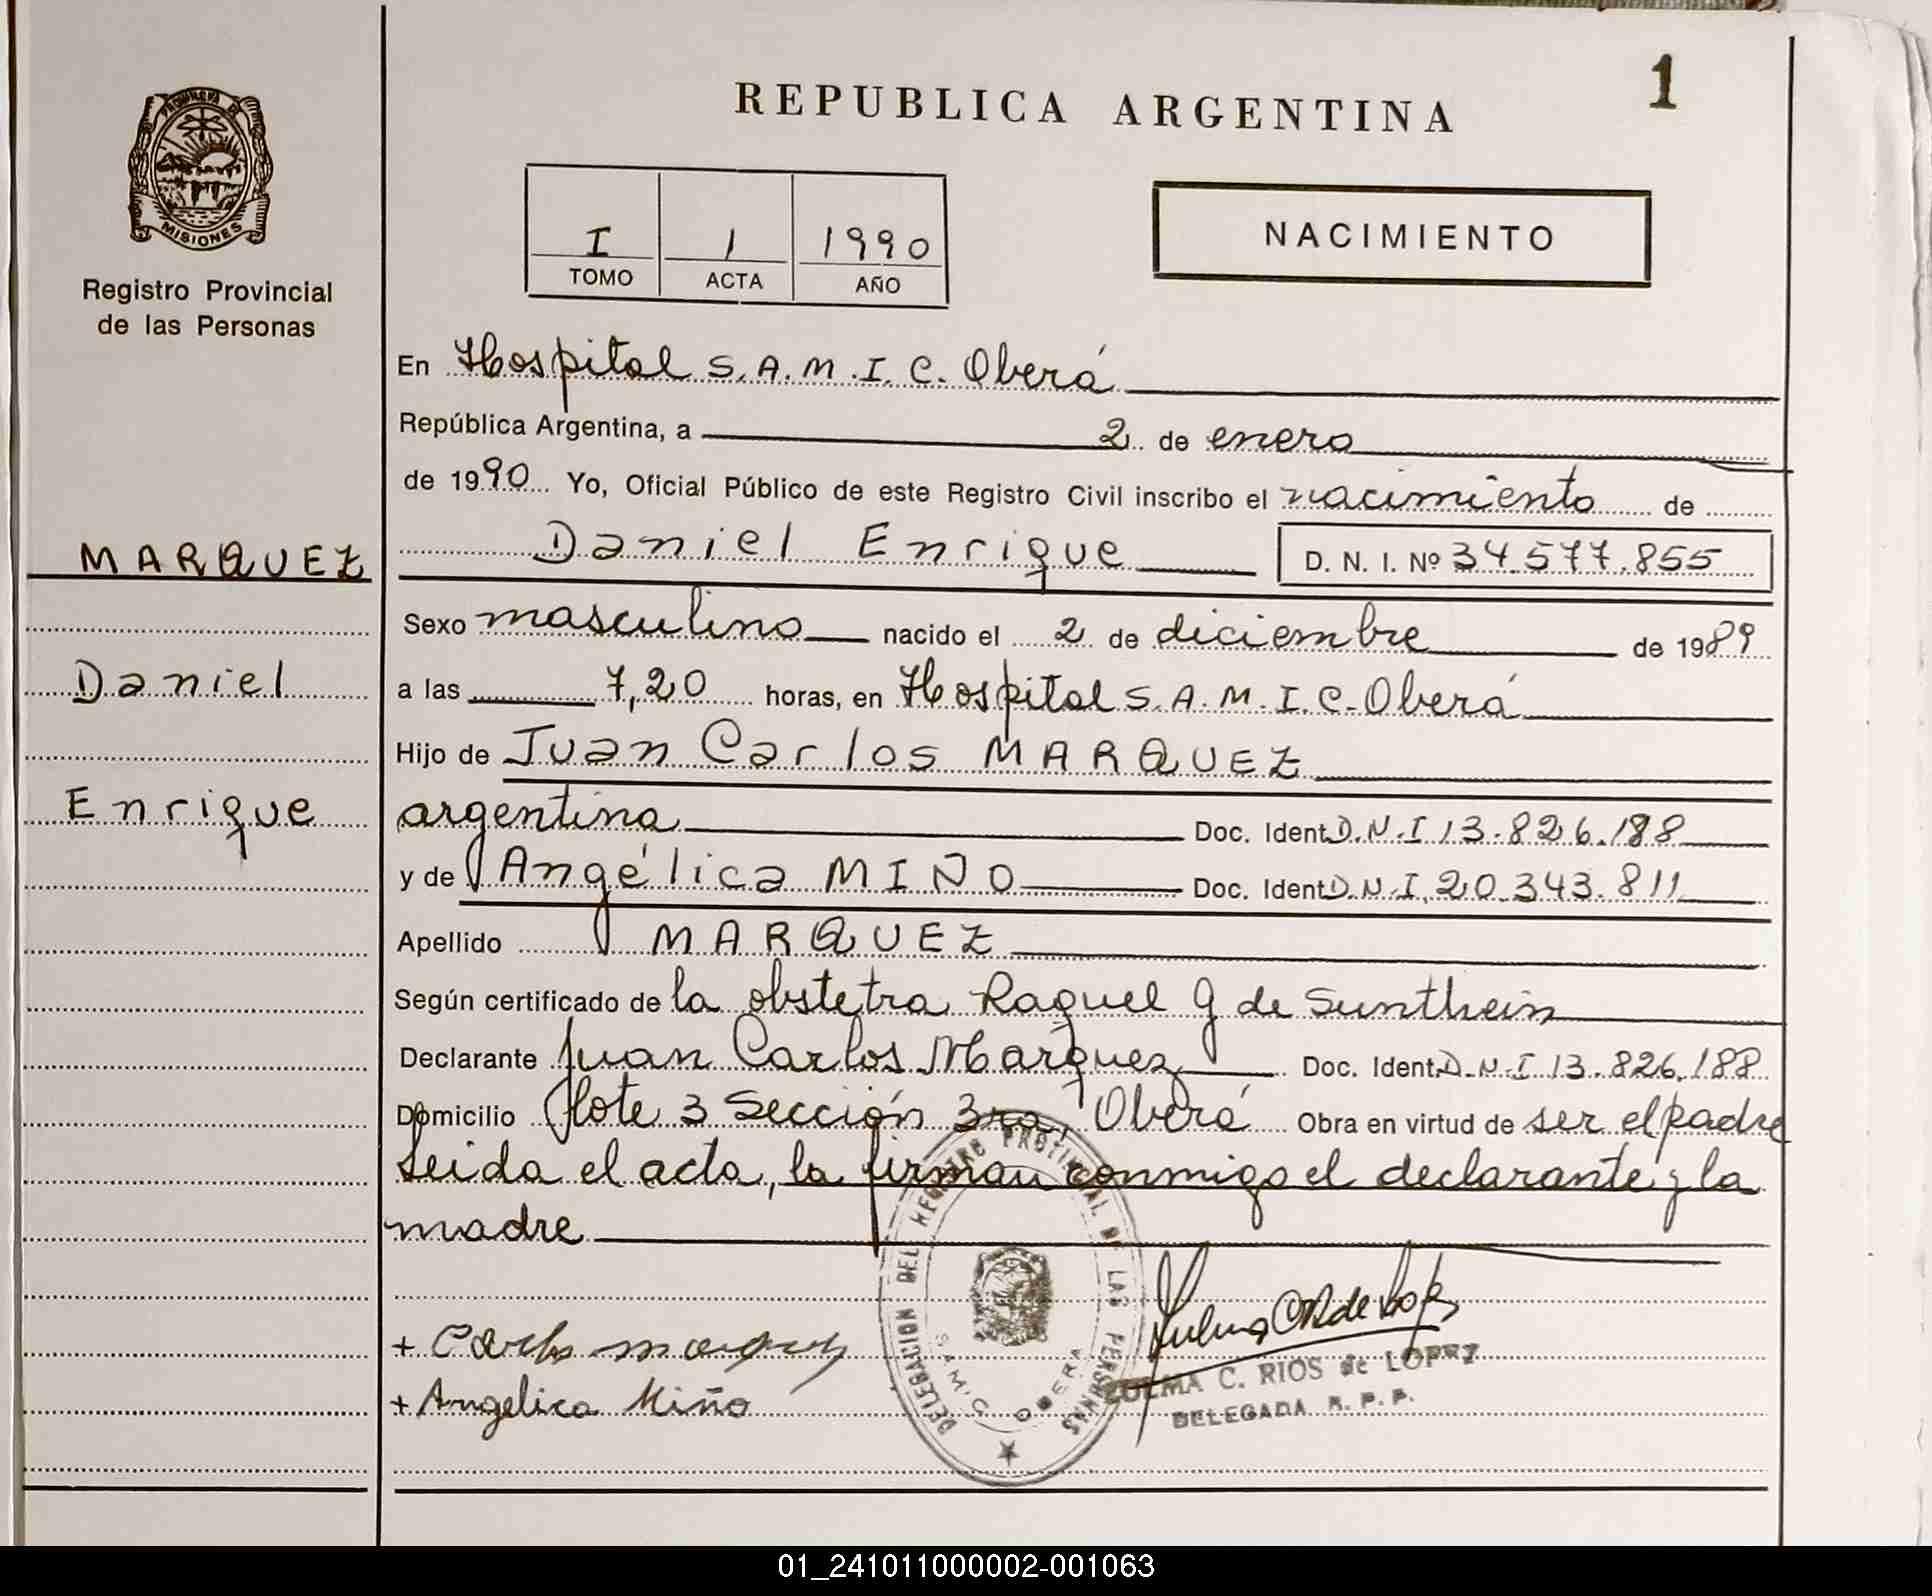 REPUBLICA ARGENTINA
1
PROVINCIA DE
MISIONES
Registro Provincial
de las Personas
I 1 1990
TOMO ACTA AÑO
NACIMIENTO
En Hospital S.A.M.I.C. Oberá
República Argentina, a 2 de enero
de 1990 Yo, Oficial Público de este Registro Civil inscribo el nacimiento de
MARQUEZ
Daniel Enrique D. N. I. Nº 34.577.855
Sexo masculino nacido el 2 de diciembre de 1989
Daniel
a las 7,20 horas, en Hospital S.A.M.I.C. Oberá
Hijo de Juan Carlos MARQUEZ
Enrique
argentina Doc. Ident. D.N.I 13.826.188
y de Angélica MIÑO Doc. Ident. D.N.I. 20.343.811
Apellido MARQUEZ
Según certificado de la obstetra Raquel G de Sunthein
Declarante Juan Carlos Marquez Doc. Ident. D.N.I 13.826.188
Domicilio lote 3 Sección 3ra, Oberá Obra en virtud de ser el padre
Leida el acta, la firman conmigo el declarante y la
madre
DELEGACION DEL REGISTRO PROVINCIAL DE LAS PERSONAS
S.A.M.I.C. OBERA
+ Carlos marquez
+ Angelica Miño
ZULMA C. RIOS de LOPEZ
DELEGADA R. P. P.
01_241011000002-001063